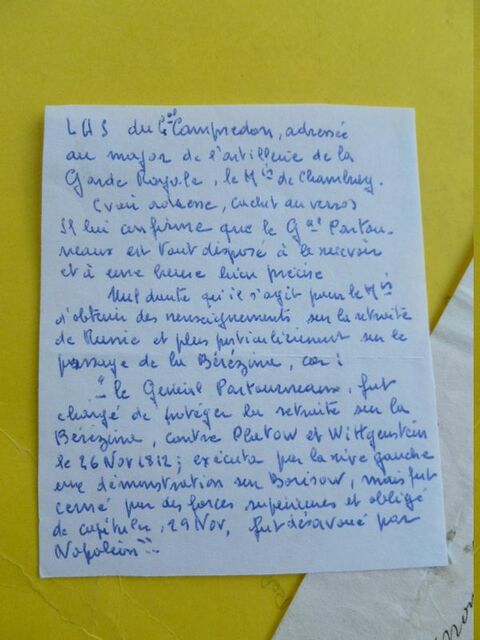 LAS du Gal Campredon, adressée
au major de l'artillerie de la
Garde Royale, le Mis de Chambray.
(voir adresse, cachet au verso)
Il lui confirme que le Gal Partou-
neaux est tout disposé à le recevoir
et à une heure bien précise
Nul doute qu'il s'agit pour le Mis
d'obtenir des renseignements sur la retraite
de Russie et plus particulièrement sur le
passage de la Bérézina, car :
"le Général Partourneaux, fut
chargé de protéger la retraite sur la
Bérézina, contre Platow et Wittgenstein
le 26 Nov 1812; exécuta par la rive gauche
une démonstration sur Borisow, mais fut
cerné par des forces supérieures et obligé
de capituler, 29 Nov, fut désavoué par
Napoléon"